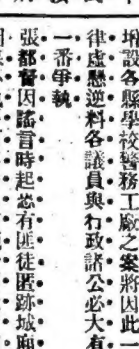 增設各縣學校警務工廠之案將因此一
律虛懸逆料各議員與行政諸公必大有
一番爭執
張都督因謠言時起恐有匪徒匿跡城廂